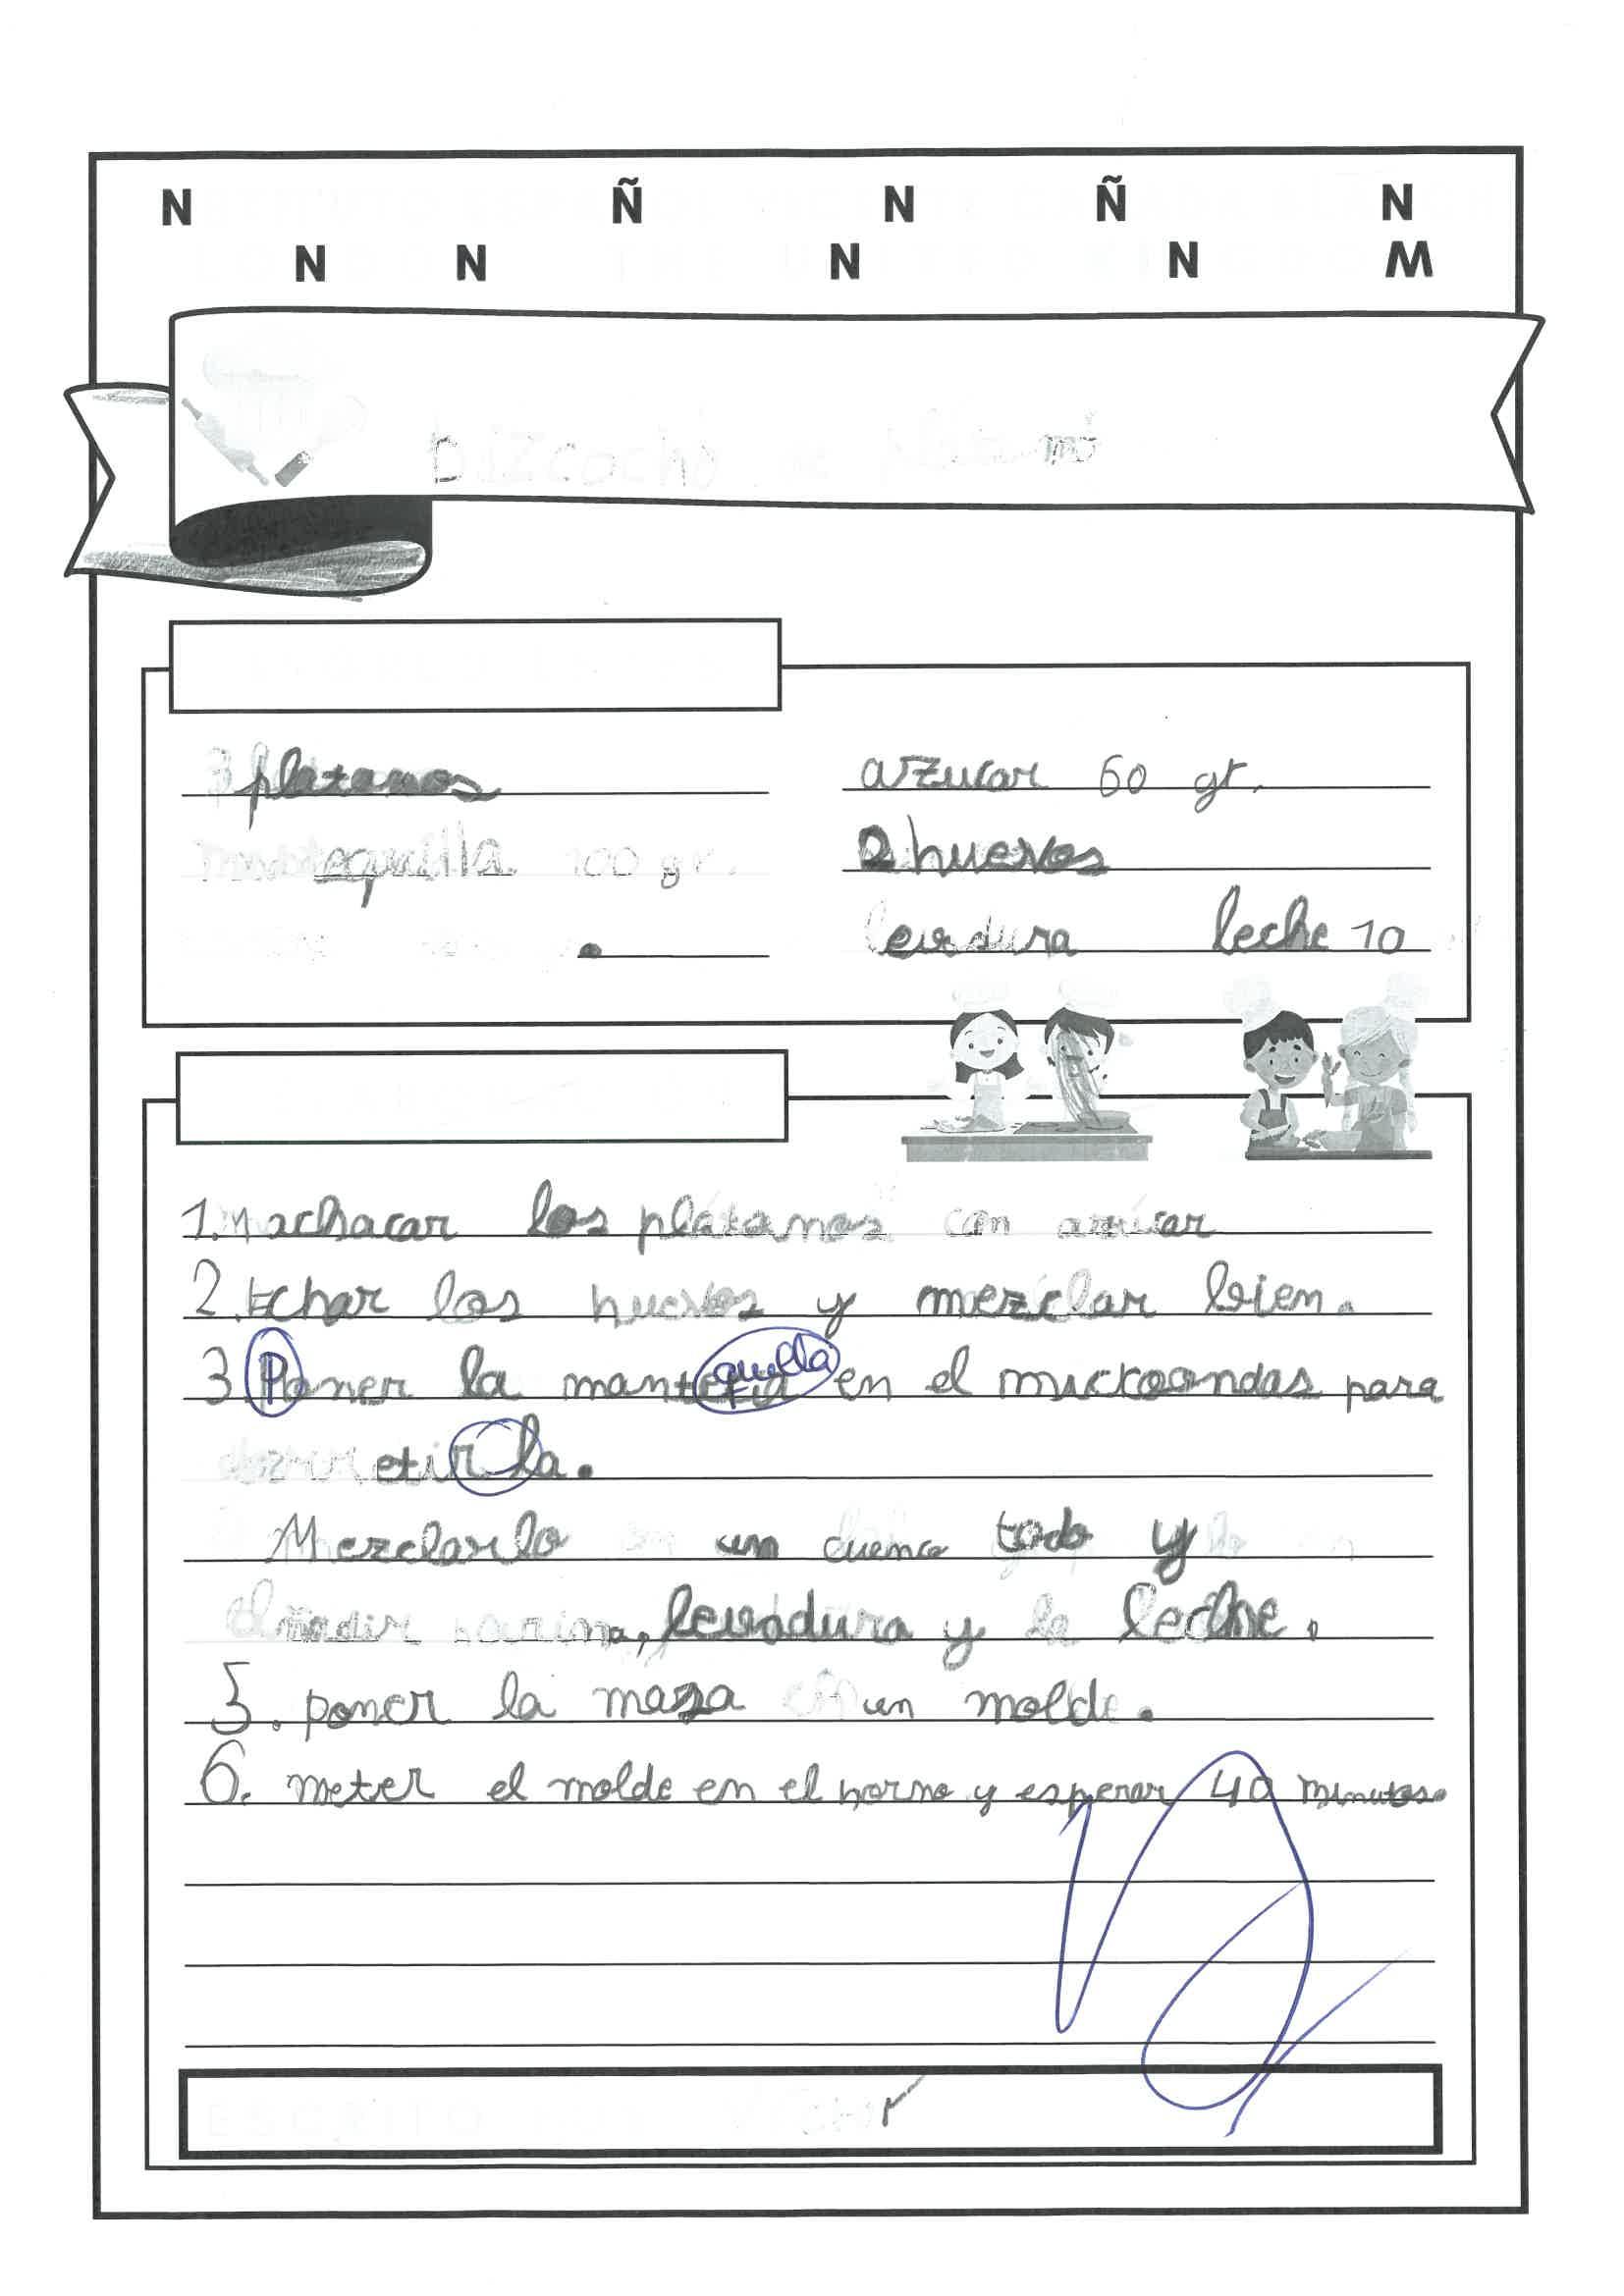 N Ñ N Ñ N
N N N N M
bizcocho de plátano
3 platanos
azucar 60 gr.
mantequilla 100 gr.
2 huevos
levadura leche 10
1. Machacar los plátanos con azúcar
2. Echar los huevos y mezclar bien.
3. Poner la mantequilla en el microondas para
derretirla.
Mezclarlo en un cuenco todo y
añadir harina, levadura y la leche.
5. poner la masa en un molde.
6. meter el molde en el horno y esperar 40 minutos.
ESCRITO